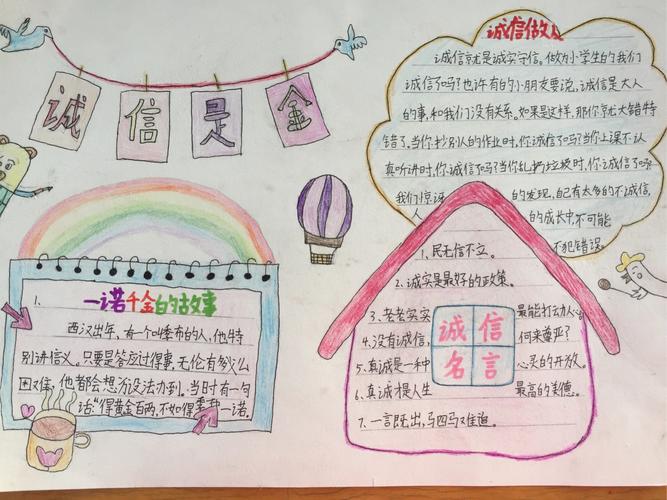 诚信是金
诚信做人
诚信就是诚实守信。做为小学生的我们
诚信了吗?也许有的小朋友要说,诚信是大人
的事,和我们没有关系。如果是这样,那你就大错特
错了。当你抄别人的作业时,你诚信了吗?当你上课不认
真听讲时,你诚信了吗?当你乱扔垃圾时,你诚信了吗
我们惊讶 的发现,自己有太多的不诚信,
人 的成长中不可能
不犯错误。
1. 一诺千金的故事
西汉出年,有一个叫季布的人,他特
别讲信义。只要是答应过得事,无伦有多么
困难,他都会想方设法办到。当时有一句
话:“得黄金百两,不如得季布一诺。
1、民无信不立。
2、诚实是最好的政策。
3、老老实实 最能打动人心
4、没有诚信, 何来尊严?
5、真诚是一种 心灵的开放。
6、真诚才是人生 最高的美德。
7、一言既出,马四马又难追。
诚信
名言